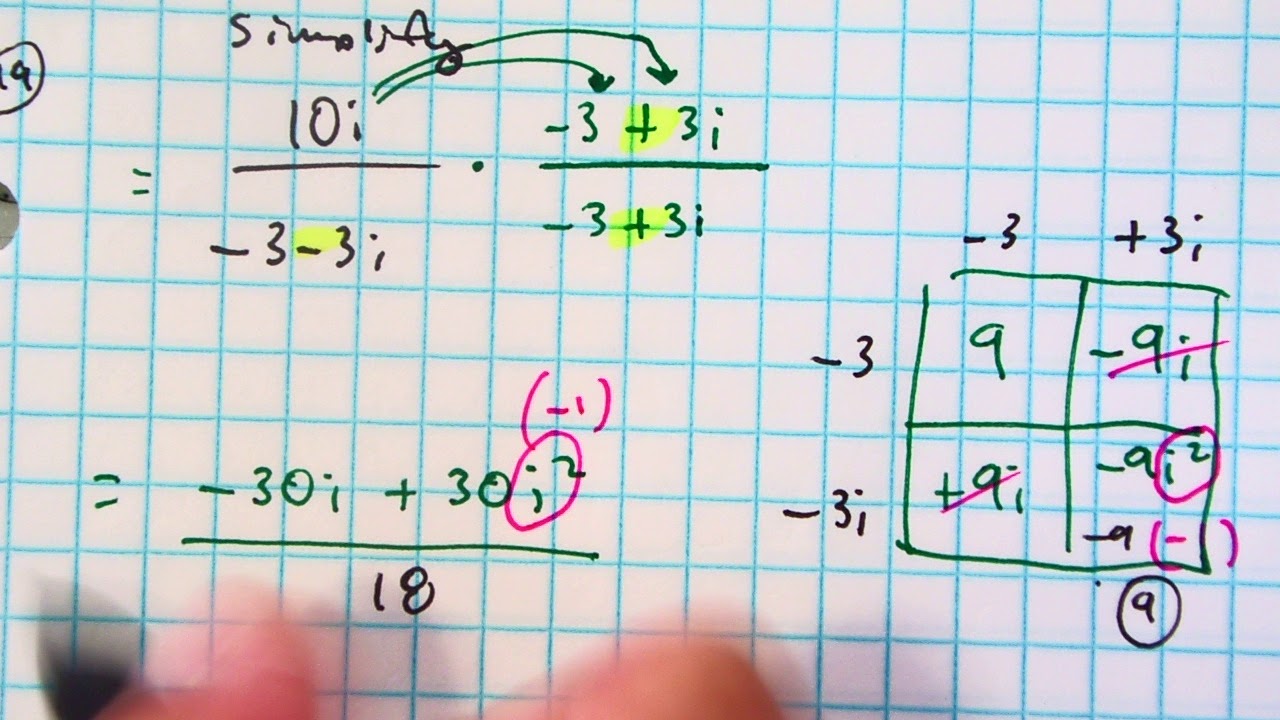 Simplify
19
10i -3 + 3i
= ———— · ————
-3 - 3i -3 + 3i
-3 +3i
-3 9 -9i
-3i +9i -9i²
-9(-1)
9
(-1)
= -30i + 30i²
————
18